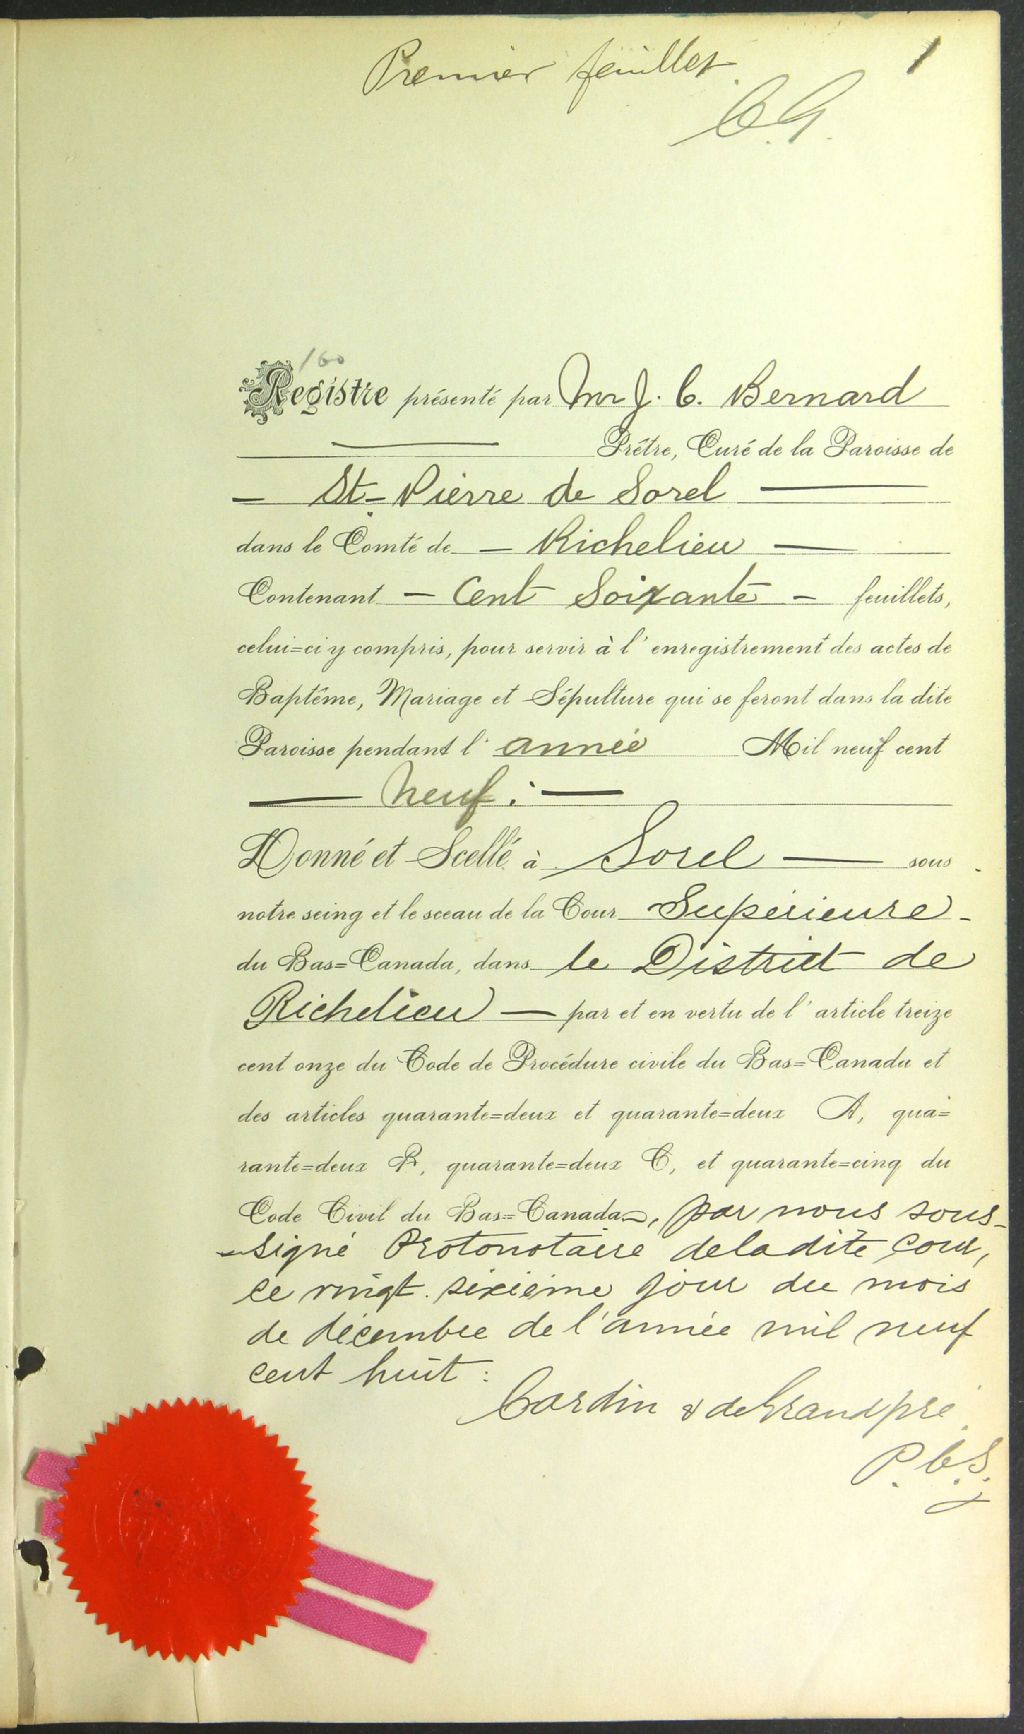 Premier feuillet 1
C.G.
160
Registre présenté par Mr J. C. Bernard
Prêtre, Curé de la Paroisse de
— St-Pierre de Sorel —
dans le Comté de — Richelieu —
Contenant — Cent Soixante — feuillets,
celui=ci y compris, pour servir à l'enregistrement des actes de
Baptême, Mariage et Sépulture qui se feront dans la dite
Paroisse pendant l'année Mil neuf cent
— Neuf : —
Donné et Scellé à Sorel — sous
notre seing et le sceau de la Cour Supérieure -
du Bas=Canada, dans le District de
Richelieu — par et en vertu de l'article treize
cent onze du Code de Procédure civile du Bas=Canada et
des articles quarante=deux et quarante=deux A, qua=
rante=deux B, quarante=deux C, et quarante=cinq du
Code Civil du Bas=Canada, par nous sous-
-signé Protonotaire de la dite Cour,
ce vingt-sixième jour du mois
de décembre de l'année mil neuf
cent huit :
Cardin & deGrandpré
P.C.S.